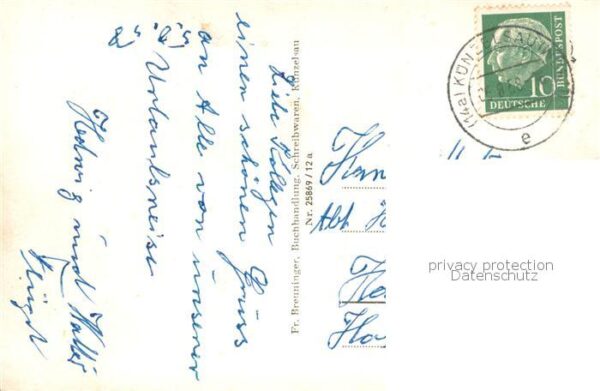 Liebe Kollegen
einen schönen Gruss
an Alle von unserer
Urlaubsreise
Hedwig und Walter
Fr. Breuninger, Buchhandlung, Schreibwaren, Künzelsau
Nr. 25869/12 a
(14a) KÜNZELSAU
e
10
DEUTSCHE
BUNDESPOST
Abt
privacy protection
Datenschutz